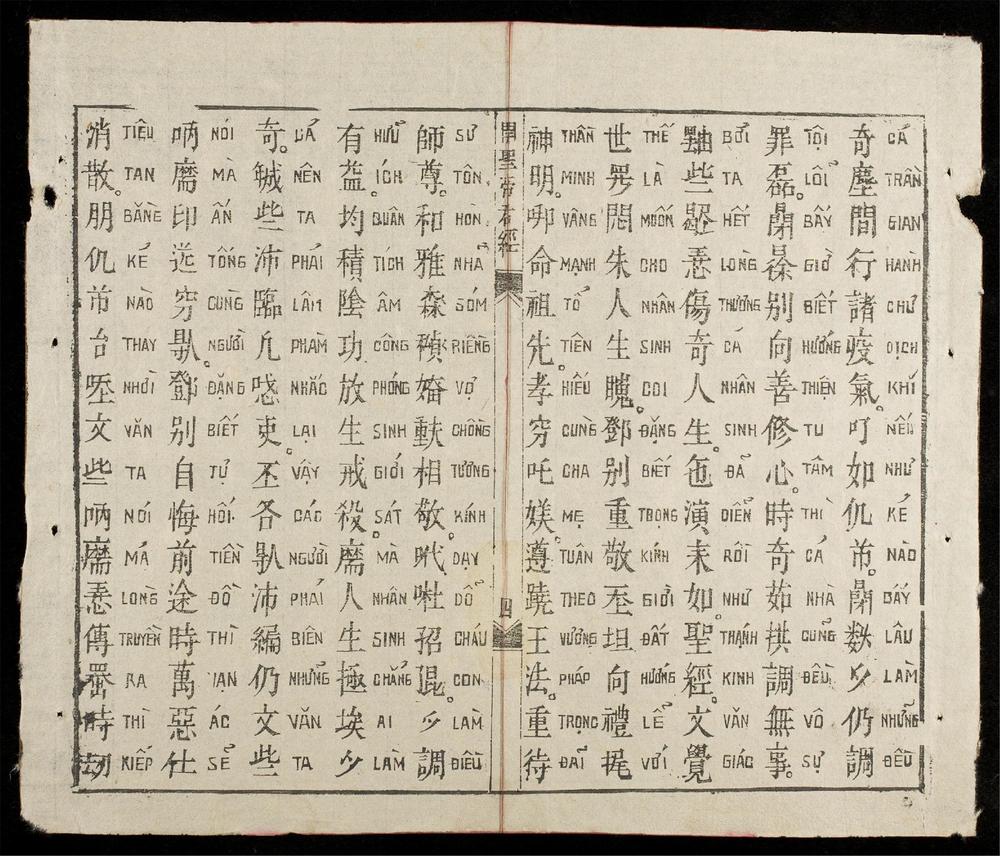 CÁ TRẦN GIAN HÀNH CHƯ DỊCH KHÍ NẾU NHƯ KẺ NÀO BẤY LÂU LÀM NHỮNG ĐỀU
奇塵間行諸疫氣。叮如仉芇。閉数𫜵仍調
TỘI LỔI BẤY GIỜ BIẾT HƯỚNG THIỆN TU TÂM THÌ CÁ NHÀ CŨNG ĐỀU VÔ SỰ
罪磊。閉𣇞别向善修心。時奇茹拱調無事。
BỞI TA HẾT LÒNG THƯƠNG CÁ NHÂN SINH ĐÃ DIỂN RỒI NHƯ THÁNH KINH VĂN GIÁC
些歇𢚸傷奇人生。㐌演耒如聖經。文覺
THẾ LÀ MUỐN CHO NHÂN SINH COI ĐẶNG BIẾT TRONG KÍNH GIỜI ĐẤT HƯỚNG LỂ VỚI
世𱺵悶朱人生𥋳。鄧别重敬𡗶坦向禮𢭲
THẦN MINH VÂNG MẠNH TỔ TIÊN HIẾU CÙNG CHA MẸ TUÂN THEO VƯƠNG PHÁP TRỌNG ĐÃI
神明。㖡命祖先。孝穷吒媄。遵蹺王法。重待
聖帝君經
四
SƯ TÔN HÒN NHÃ SỚM RIÊNG VỢ CHỒNG TƯƠNG KÍNH DẠY DỖ CHÁU CON LÀM ĐIỀU
師尊。和雅森𥢆𡞕𫯳相敬。𠰺𠴗招混。𫜵調
HỮU ÍCH QUÂN TÍCH ÂM CÔNG PHÓNG SINH GIỚI SÁT MÀ NHÂN SINH CHẲNG AI LÀM
有益。均積陰功放生戒殺。𦓡人生極埃𫜵
CẢ NÊN TA PHẢI LÂM PHÀM NHẮC LẠI VẬY CÁC NGƯỜI PHẢI BIÊN NHỮNG VĂN TA
奇。𢧚些沛臨凡吏。丕各𠊛沛編仍文些
NÓI MÀ ẤN TỐNG CÙNG NGƯỜI ĐẶNG BIẾT TỰ HỐI TIỀN ĐỒ THÌ VẠN ÁC SẼ
呐𦓡印送穷𠊛。鄧别自悔前途時萬惡仕
TIÊU TAN BẰNG KẺ NÀO THAY NHỜI VĂN TA NÓI MÁ LONG TRUYỀN RA THÌ KIẾP
消散。朋仉芇台文些呐𦓡𢚸傳𠚢時劫